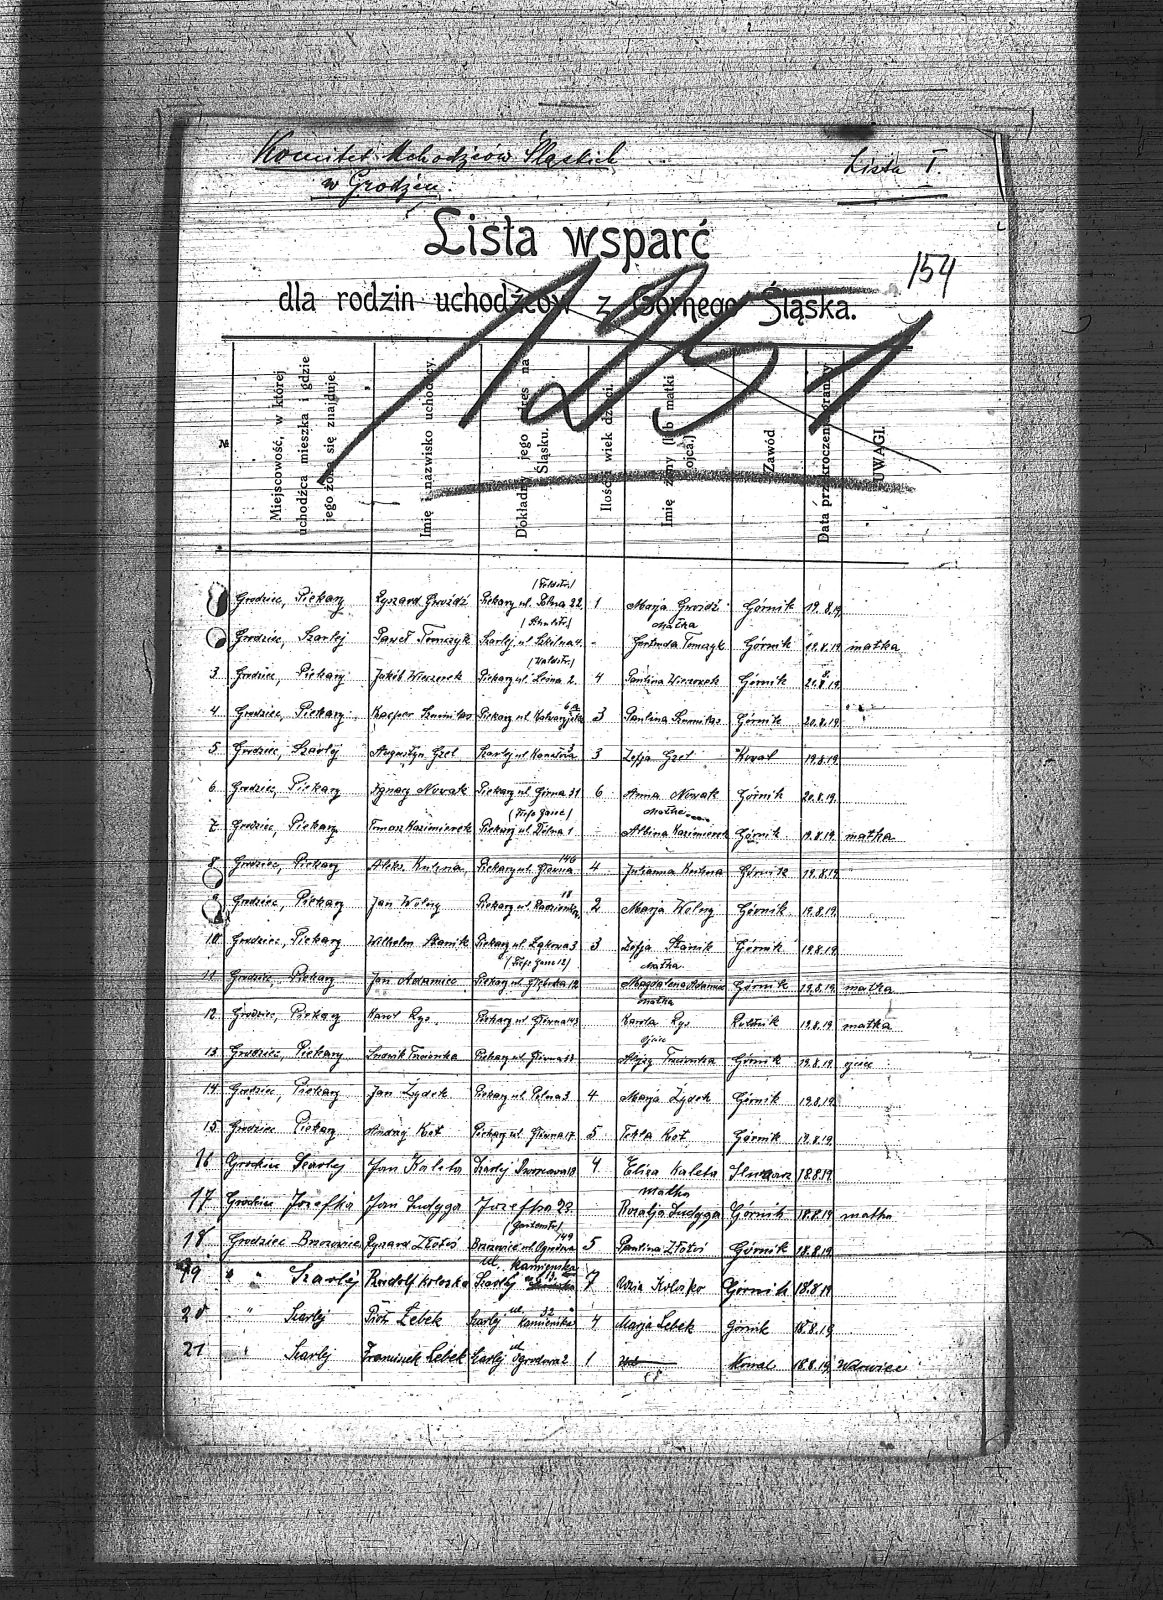 Komitet Uchodźców Śląskich
w Grodźcu.
Lista I.
Lista wsparć
154
dla rodzin uchodźców z Górnego Śląska.
1251
№ Miejscowość, w której uchodźca mieszka i gdzie jego żona się znajduje. Imię i nazwisko uchodźcy. Dokładny jego adres na Śląsku. Ilość i wiek dzieci. Imię żony (lub matki ojca.) Zawód Data przekroczenia granicy. UWAGI.
Grodziec, Piekary Ryszard Gwóźdź Piekary ul. Polna 22 (Feldstr.) 1 Marja Gwóźdź Górnik 19.8.19
Grodziec, Szarlej Paweł Tomczyk Szarlej ul Szkolna 4. (Schulstr.) - Matka Gertruda Tomczyk Górnik 19.8.19 matka
3 Grodziec, Piekary Jakób Wieczorek Piekary ul. Leśna 2. (Waldstr.) 4 Paulina Wieczorek Górnik 21.8.19
4 Grodziec, Piekary Kacper Piekary ul Kalwaryjska 6a 3 Paulina Górnik 20.8.19
5 Grodziec, Szarlej Augustyn Gzel Szarlej ul 3 Zofja Gzel Kowal 19.8.19
6 Grodziec, Piekary Ignacy Nowak Piekary ul. Górna 31 6 Anna Nowak Górnik 20.8.19
7 Grodziec, Piekary Tomasz Kazimierek Piekary ul Dolna 1 (Tiefe Gasse) Matka Albina Kazimierek Górnik 19.8.19 matka
8 Grodziec, Piekary Aleks. Piekary ul. Główna 146 4 Julianna Górnik 19.8.19
9 Grodziec, Piekary Jan Wolny Piekary ul 18 2 Marja Wolny Górnik 19.8.19
10 Grodziec, Piekary Wilhelm Skanik Piekary ul. Łąkowa 3 3 Zofja Skanik Górnik 19.8.19
11 Grodziec, Piekary Jan Adamiec Piekary ul. Głęboka 12 (Tiefe Gasse 12) Matka Magdalena Adamiec Górnik 19.8.19 matka
12 Grodziec, Piekary Karol Rys. Piekary ul Główna 143 Matka Karola Rys 19.8.19 matka
13 Grodziec, Piekary Ludwik Piekary ul Główna ojciec Alojzy Górnik 19.8.19 ojciec
14 Grodziec, Piekary Jan Żydek Piekary ul Polna 3 4 Marja Żydek Górnik 19.8.19
15 Grodziec Piekary Andrzej Kot Piekary ul. Główna 17 5 Tekla Kot Górnik 19.8.19
16 Grodziec Szarlej Jan Kaleta Szarlej Dworcowa 18 4 Eliza Kaleta Ślusarz 18.8.19
17 Grodziec Józefka Jan Ludyga Józefka 22. Matka Rozalja Ludyga Górnik 18.8.19 matka
18 Grodziec Brzozowice Ryszard Złotoś Brzozowic ul. Ogrodowa 149 (Gartenstr) 5 Paulina Złotoś Górnik 18.8.19
19 " " Szarlej Rudolf Kolosko Szarlej ul. Kamieńska 13. 7 Kolosko Górnik 18.8.19
20 " Szarlej Piotr Lebek Szarlej ul. Kamieńska 32 4 Marja Lebek Górnik 18.8.19
21 " Szarlej Franciszek Lebek Szarlej ul Ogrodowa 2 1 Kowal 18.8.19 Wdowiec